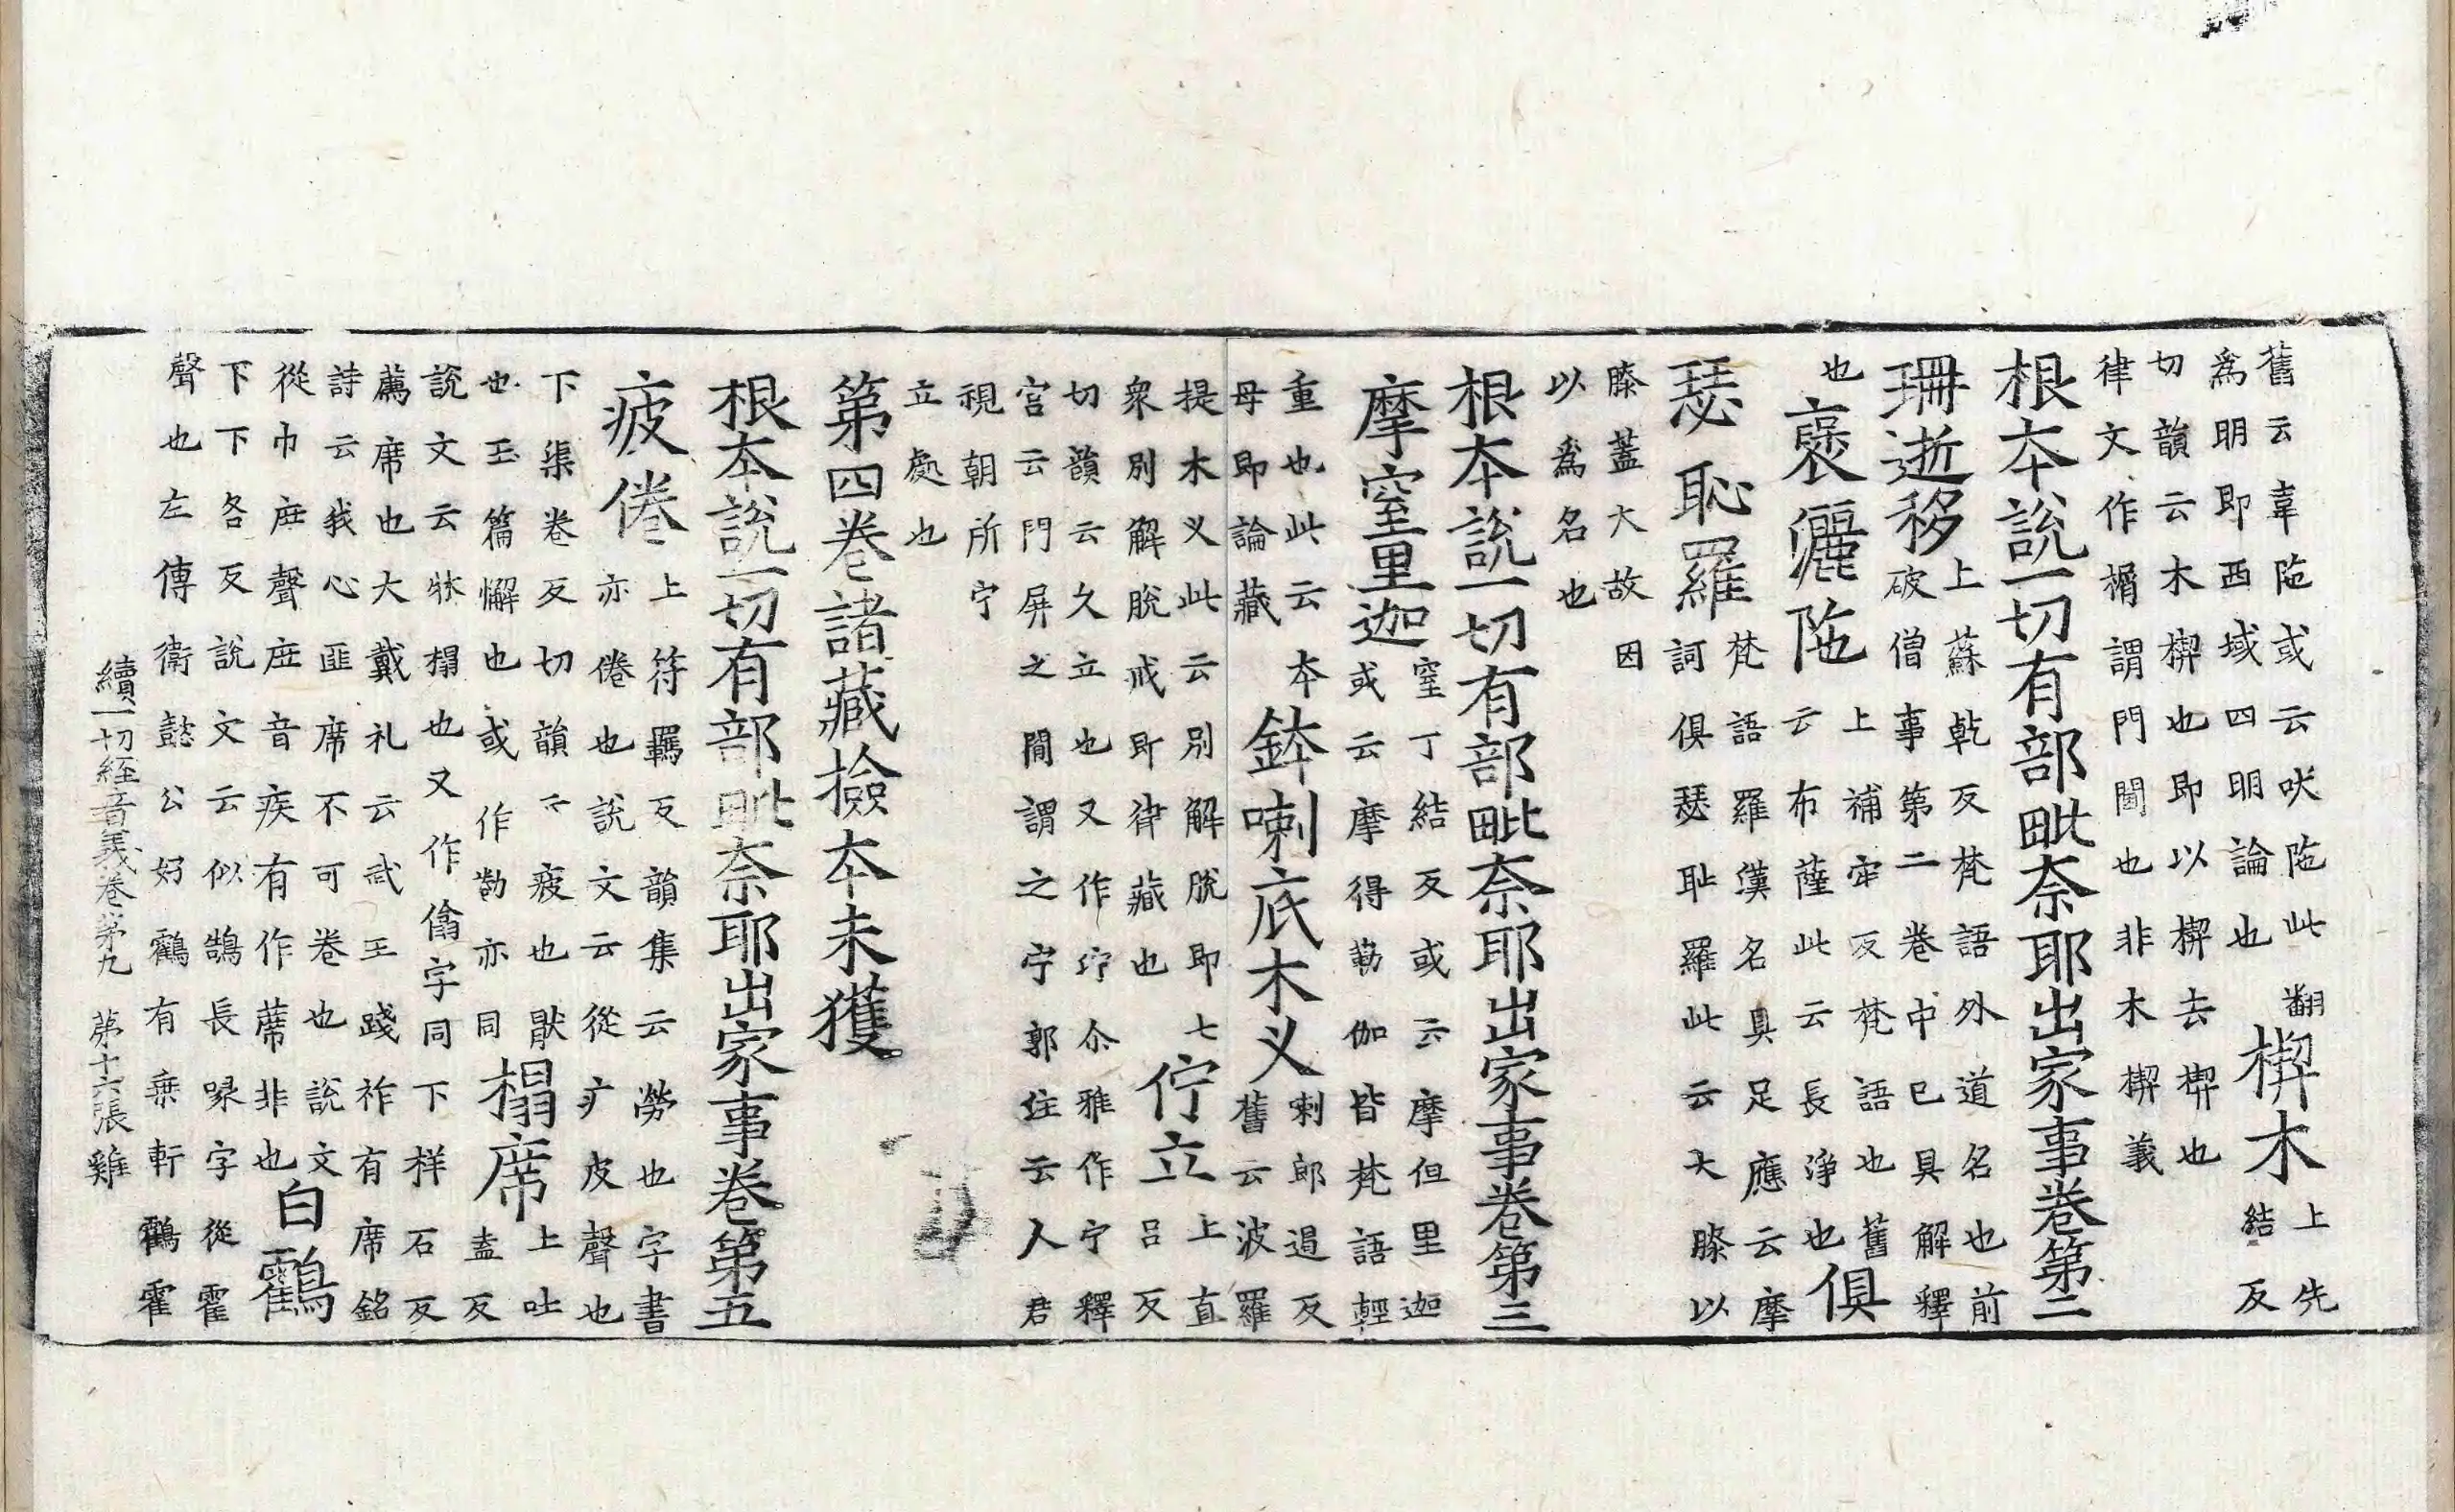 舊云韋陁或云吠陁此翻
爲明即西域四明論也
楔木
上先
結反
切韻云木楔也即以楔去楔也
律文作榍謂門閫也非木楔義
根本說一切有部毗奈耶出家事卷第二
珊逝移
上蘇乹反梵語外道名也前
破僧事第二卷中已具解釋
也
裦灑陁
上補牢反梵語也舊
云布薩此云長淨也
俱
瑟恥羅
梵語羅漢名具足應云摩
訶俱瑟耻羅此云大膝以
膝蓋大故因
以爲名也
根本說一切有部毗奈耶出家事卷第三
摩窒里迦
窒丁結反或云摩但里迦
或云摩得勒伽皆梵語輕
重也此云本
母即論藏
鉢喇底木叉
喇郎遏反
舊云波羅
提木叉此云別解脫即七
衆別解脫戒即律藏也
佇立
上直
吕反
切韻云久立也又作竚尒雅作宁釋
宮云門屏之間謂之宁郭住云人君
視朝所宁
立處也
第四卷諸藏撿本未獲
根本說一切有部毗奈耶出家事卷第五
疲倦
上符羈反韻集云勞也字書
亦倦也說文云從疒皮聲也
下渠卷反切韻云疲也猒
也玉篇懈也或作勌亦同
榻席
上吐
盍反
說文云牀榻也又作㒓字同下祥石反
薦席也大戴礼云武王踐祚有席銘
詩云我心匪席不可卷也說文
從巾庶聲庶音疾有作蓆非也
白鸖
下下各反說文云似鵠長喙字從霍
聲也左傳衛懿公好鸖有乗軒鸖霍
續一切經音義卷第九 第十六張 雞